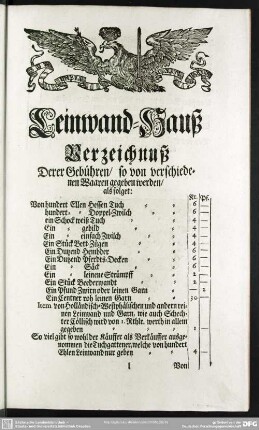 Leinwand-Hauß
Verzeichnuß
Derer Gebühren / so von verschiede-
nen Waaren gegeben werden /
als folget:
Kr. Pf.
Von hundert Ellen Hessen Tuch 6
hundert Doppel-Zwilch 6
ein Schock weiß Tuch 4
Ein gebild 4
Ein einfach Zwilch 4
Ein Stück Bett-Ziegen 4
Ein Dutzend Hembder 4
Ein Dutzend Pferdts-Decken 4
Ein Säck 4
Ein leinene Strümpff
Ein Stück Beederwandt 2
Ein Pfund Zwirn oder leinen Garn 2
Ein Centner roh leinen Garn 30
Item von Holländisch-Westphälischen und andern rei-
nen Leinwand und Garn, wie auch Schech-
ter Cöllisch wird von 1. Rthlr. werth in allem
gegeben 1
So viel gibt so wohl der Käuffer als Verkäuffer ausge-
nommen die Tuchgattener, welche von hundert
Ehlen Leinwand nur geben 4
1 Von